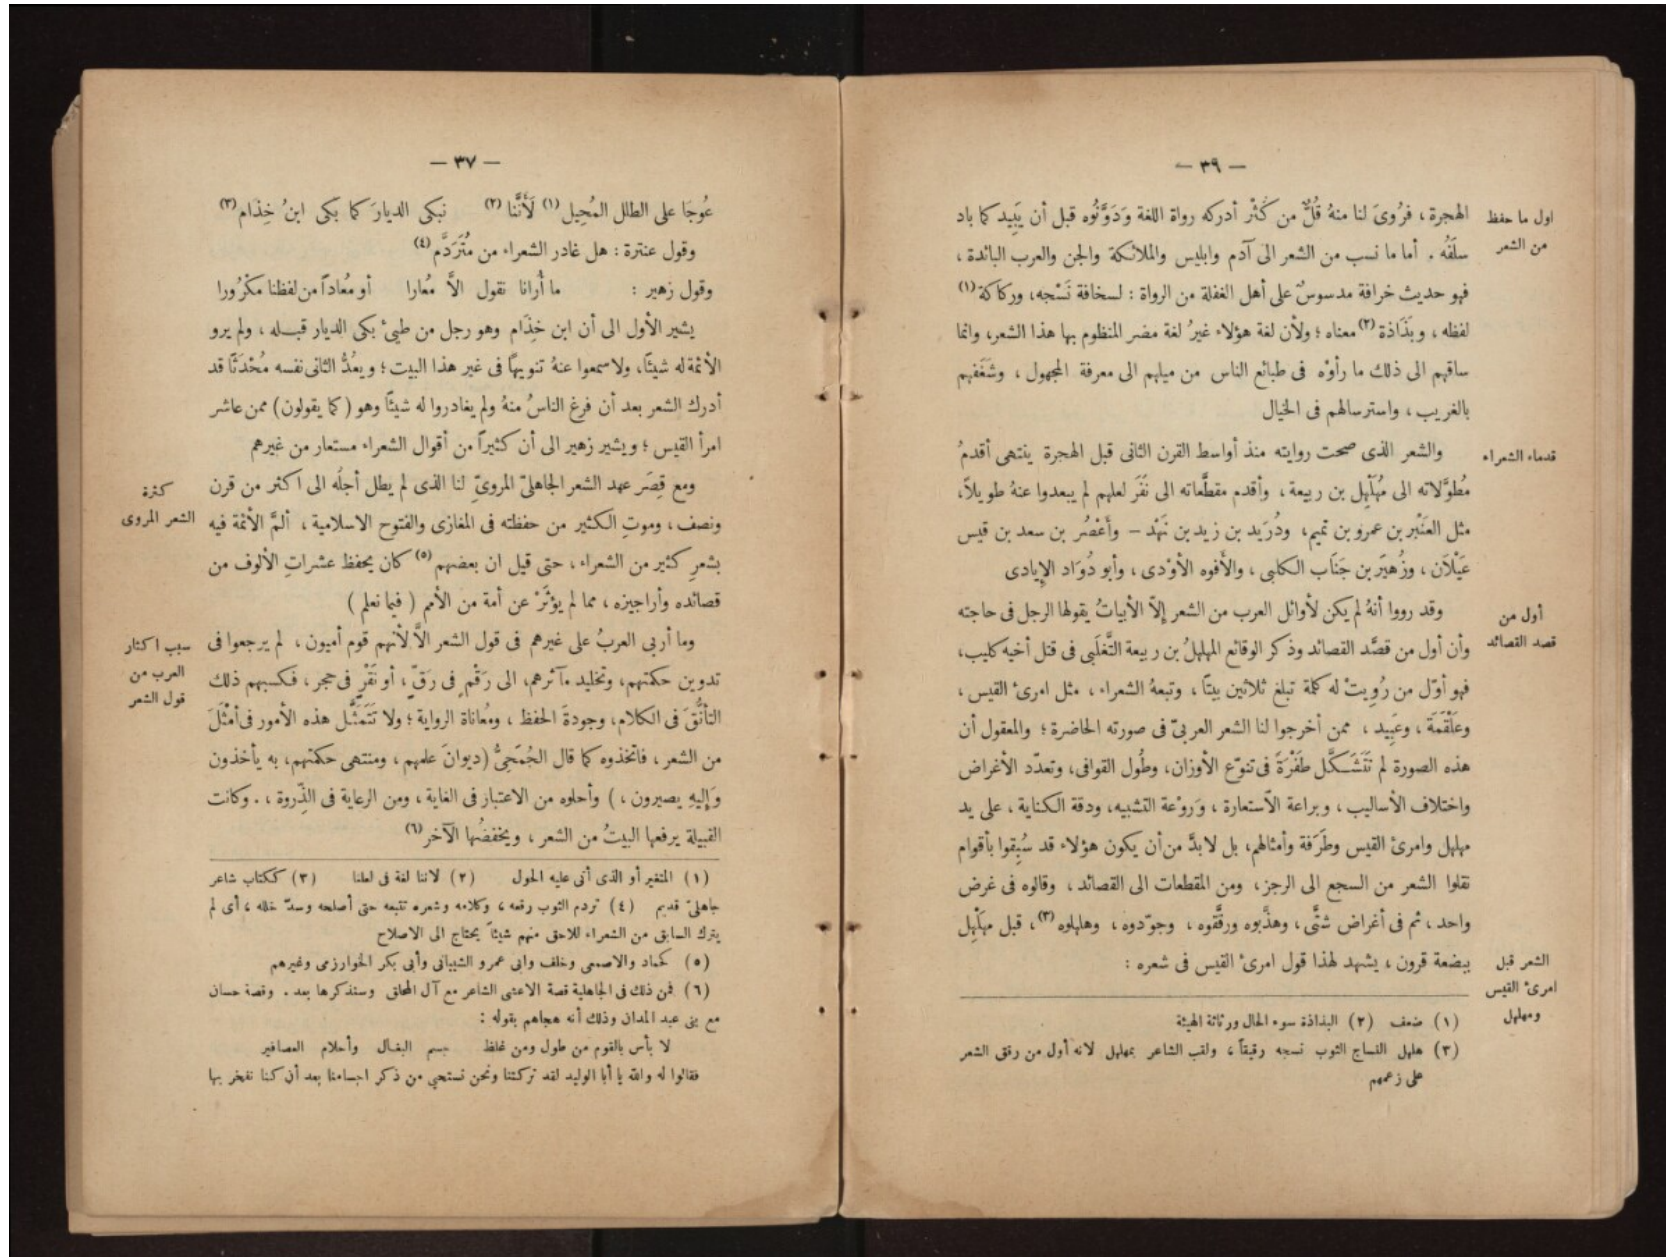 — ٣٩ —
اول ما حفظ
من الشعر
الهجرة ، فرُوىَ لنا منهُ قُلٌّ من كُثْر أدركه رواة اللغة وَدَوَّنُوه قبل أن يَبِيد كما باد
سلَفُه . أما ما نسب من الشعر الى آدم وابليس والملائكة والجن والعرب البائدة ،
فهو حديث خرافة مدسوسٌ على أهل الغفلة من الرواة : لسخافة نَسْجه، وركاكة (١)
لفظه ، وبَذَاذة (٢) معناه ؛ ولأن لغة هؤلاء غيرُ لغة مضر المنظوم بها هذا الشعر، وانما
ساقهم الى ذلك ما رأوْه فى طبائع الناس من ميلهم الى معرفة المجهول ، وشَغَفهم
بالغريب ، واسترسالهم فى الخيال
قدماء الشعراء
والشعر الذى صحت روايته منذ أواسط القرن الثانى قبل الهجرة ينتهى أقدمُ
مُطوَّلاته الى مُهَلْهِل بن ربيعة ، وأقدم مقطَّعاته الى نَفَر لعلهم لم يبعدوا عنهُ طويلاً،
مثل العَنْبر بن عمرو بن تميم، ودُرَيد بن زيد بن نَهْد — وأَعْصُر بن سعد بن قيس
عَيْلاَن ، وزُهَيَر بن جَنَاب الكلبى ، والأَفوه الأَوْدى ، وأبو دُوَاد الإِيادى
أول من
قصد القصائد
وقد رووا أنهُ لم يكن لأوائل العرب من الشعر إِلاّ الأبياتُ يقولها الرجل فى حاجته
وأن أول من قصَّد القصائد وذكر الوقائع المهلهلُ بن ربيعة التَّغلَبى فى قتل أخيه كليب،
فهو أوّل من رُوِيتْ له كلمة تبلغ ثلاثين بيتًا ، وتبعهُ الشعراء ، مثل امرئ القيس ،
وعَلْقَمَة ، وعَبِيد ، ممن أخرجوا لنا الشعر العربىّ فى صورته الحاضرة ؛ والمعقول أن
هذه الصورة لم تَتَشَكَّل طَفْرَةً فى تنوّع الأوزان، وطُول القوافى، وتعدّد الأغراض
واختلاف الأساليب ، وبراعة الاستعارة ، وَروْعة التشبيه، ودقة الكناية ، على يد
مهلهل وامرئ القيس وطَرَفة وأمثالهم، بل لابدَّ من أن يكون هؤلاء قد سُبِقوا بأقوام
نقلوا الشعر من السجع الى الرجز، ومن المقطعات الى القصائد ، وقالوه فى غرض
واحد ، ثم فى أغراض شتَّى ، وهذَّبوه ورقَّقوه ، وجوّدوه ، وهلهلوه (٣)، قبل مهَلْهِل
الشعر قبل
امرئ القيس
ومهلهل
ببضعة قرون ، يشهد لهذا قول امرئ القيس فى شعره :
(١) ضعف (٢) البذاذة سوء الحال ورثاثة الهيئة
(٣) هلهل النساج الثوب نسجه رقيقاً ، ولقب الشاعر بمهلهل لانه أول من رقق الشعر
على زعمهم
— ٣٧ —
عُوجَا على الطلل المُحِيل (١) لَأَنَّنا (٢) نبكى الديارَ كما بكى ابنُ خِذَام (٣)
وقول عنترة : هل غادر الشعراء من مُتَرَدَّم (٤)
وقول زهير : ما أُرانا نقول الاَّ مُعارا أو مُعاداً من لفظنا مكْرُورا
يشير الأول الى أن ابن خِذَام وهو رجل من طىئ بكى الديار قبله ، ولم يرو
الأئمة له شيئًا، ولا سمعوا عنهُ تنويهًا فى غير هذا البيت ؛ ويعُدُّ الثانى نفسه مُحْدَثًا قد
أدرك الشعر بعد أن فرغ الناسُ منهُ ولم يغادروا له شيئًا وهو ( كما يقولون ) ممن عاشر
امرأ القيس ؛ ويشير زهير الى أن كثيراً من أقوال الشعراء مستعار من غيرهم
كثرة
الشعر المروى
ومع قِصَر عهد الشعر الجاهلىّ المروىِّ لنا الذى لم يطل أجلُه الى اكثر من قرن
ونصف ، وموتِ الكثير من حفظته فى المغازى والفتوح الاسلامية ، ألمَّ الأئمة فيه
بشعرٍ كثير من الشعراء ، حتى قيل ان بعضهم (٥) كان يحفظ عشراتِ الألوف من
قصائده وأراجيزه ، مما لم يؤثَرْ عن أمة من الأمم ( فيما نعلم )
سبب اكثار
العرب من
قول الشعر
وما أربى العربُ على غيرهم فى قول الشعر الاَّ لأنهم قوم أميون ، لم يرجعوا فى
تدوين حكمتهم، وتخليد مآثرهم، الى رَقْم فى رَقّ ، أو نَقْرٍ فى حجر ، فكسبهم ذلك
التأنُّقَ فى الكلام، وجودةَ الحفظ ، ومُعاناة الرواية ؛ ولا تَتَمَثَّل هذه الأمور فى أمْثَلَ
من الشعر ، فاتخذوه كما قال الجُمَحىُّ (ديوانَ علمهم ، ومنتهى حكمتهم، به يأخذون
وَإليهِ يصيرون ، ) وأحلوه من الاعتبار فى الغاية ، ومن الرعاية فى الذِّروة ، . وكانت
القبيلة يرفعها البيتُ من الشعر ، ويخفضُها الآخر (٦)
(١) المتغير أو الذى أتى عليه الحول (٢) لاننا لغة فى لعلنا (٣) ككتاب شاعر
جاهلىّ قديم (٤) تردم الثوب رقعه ، وكلامه وشعره تتبعه حتى أصلحه وسدّ خلله ، أى لم
يترك السابق من الشعراء للاحق منهم شيئاً يحتاج الى الاصلاح
(٥) كحماد والاصمعى وخلف وابى عمرو الشيبانى وأبى بكر الخوارزمى وغيرهم
(٦) فمن ذلك فى الجاهلية قصة الاعشى الشاعر مع آل المحلق وسنذكرها بعد . وقصة حسان
مع بنى عبد المدان وذلك أنه هجاهم بقوله :
لا بأس بالقوم من طول ومن غلظ جسم البغال وأحلام العصافير
فقالوا له والله يا أبا الوليد لقد تركتنا ونحن نستحيى من ذكر اجسامنا بعد أن كنا نفخر بها